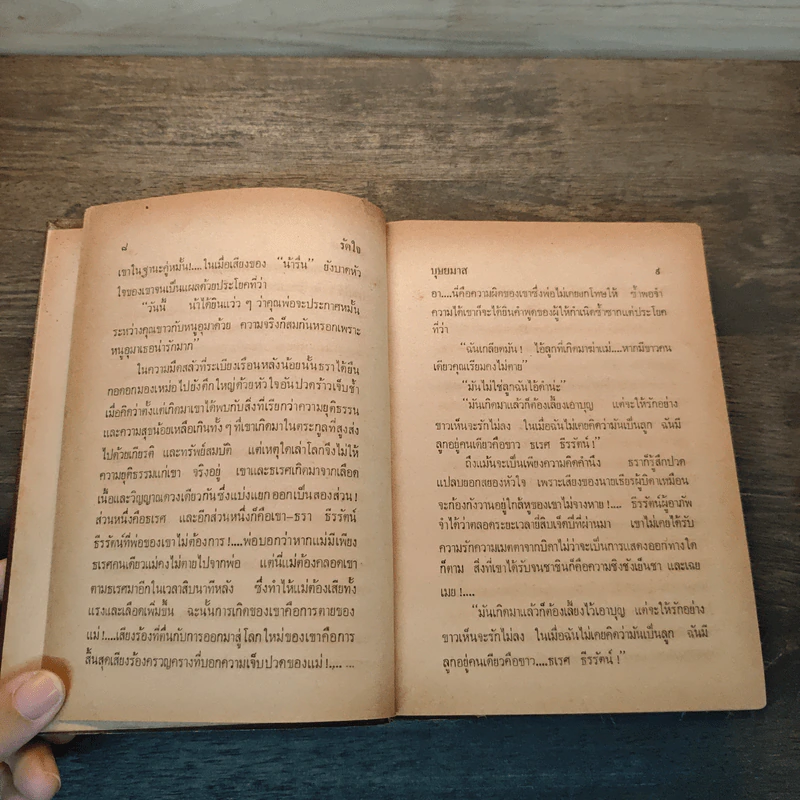 ๘ รัดใจ
เขาในฐานะคู่หมั้น!....ในเมื่อเสียงของ “น้ารื่น” ยังบาดหัว
ใจของเขาจนเป็นแผลด้วยประโยคที่ว่า
“วันนี้ น้าได้ยินแว่ว ๆ ว่าคุณพ่อจะประกาศหมั้น
ระหว่างคุณขาวกับหนูอุมาด้วย ความจริงก็สมกันหรอกเพราะ
หนูอุมาเธอน่ารักมาก”
ในความมืดสลัวที่ระเบียงเรือนหลังน้อยนั้นธราได้ยืน
กอดอกมองเหม่อไปยังตึกใหญ่ด้วยหัวใจอันปวดร้าวเจ็บช้ำ
เมื่อคิดว่าตั้งแต่เกิดมาเขาได้พบกับสิ่งที่เรียกว่าความยุติธรรม
และความสุขน้อยเหลือเกินทั้ง ๆ ที่เขาเกิดมาในตระกูลที่สูงส่ง
ไปด้วยเกียรติ และทรัพย์สมบัติ แต่เหตุใดเล่าโลกจึงไม่ให้
ความยุติธรรมแก่เขา จริงอยู่ เขาและธเรศเกิดมาจากเลือด
เนื้อและวิญญาณดวงเดียวกันซึ่งแบ่งแยกออกเป็นสองส่วน!
ส่วนหนึ่งคือธเรศ และอีกส่วนหนึ่งก็คือเขา-ธรา ธีรรัตน์
ธีรรัตน์ที่พ่อของเขาไม่ต้องการ!....พ่อบอกว่าหากแม่มีเพียง
ธเรศคนเดียวแม่คงไม่ตายไปจากพ่อ แต่นี่แม่ต้องคลอดเขา
ตามธเรศมาอีกในเวลาสิบนาทีหลัง ซึ่งทำให้แม่ต้องเสียทั้ง
แรงและเลือดเพิ่มขึ้น ฉะนั้นการเกิดของเขาคือการตายของ
แม่!....เสียงร้องที่ตื่นกับการออกมาสู่โลกใหม่ของเขาคือการ
สิ้นสุดเสียงร้องครวญครางที่บอกความเจ็บปวดของแม่!.... ...
บุษยมาส ๙
อา....นี่คือความผิดของเขาซึ่งพ่อไม่เคยยกโทษให้ ซ้ำพอจำ
ความได้เขาก็จะได้ยินคำพูดของผู้ให้กำเนิดซ้ำซากแต่ประโยค
ที่ว่า
“ฉันเกลียดมัน! ไอ้ลูกที่เกิดมาฆ่าแม่....หากมีขาวคน
เดียวคุณเรียมคงไม่ตาย”
“มันไม่ใช่ลูกฉันไอ้ดำน่ะ”
“มันเกิดมาแล้วก็ต้องเลี้ยงเอาบุญ แต่จะให้รักอย่าง
ขาวเห็นจะรักไม่ลง ในเมื่อฉันไม่เคยคิดว่ามันเป็นลูก ฉันมี
ลูกอยู่คนเดียวคือขาว ธเรศ ธีรรัตน์!”
ถึงแม้นจะเป็นเพียงความคิดคำนึง ธราก็รู้สึกปวด
แปลบยอกสยองหัวใจ เพราะเสียงของนายเธียรผู้บิดาเหมือน
จะก้องกังวานอยู่ใกล้หูของเขาไม่จางหาย!.... ธีรรัตน์ผู้อาภัพ
จำได้ว่าตลอดระยะเวลายี่สิบเจ็ดปีที่ผ่านมา เขาไม่เคยได้รับ
ความรักความเมตตาจากบิดาไม่ว่าจะเป็นการแสดงออกทางใด
ก็ตาม สิ่งที่เขาได้รับจนชาชินก็คือความชิงชังเย็นชา และเฉย
เมย!....
“มันเกิดมาแล้วก็ต้องเลี้ยงไว้เอาบุญ แต่จะให้รักอย่าง
ขาวเห็นจะรักไม่ลง ในเมื่อฉันไม่เคยคิดว่ามันเป็นลูก ฉันมี
ลูกอยู่คนเดียวคือขาว....ธเรศ ธีรรัตน์!”